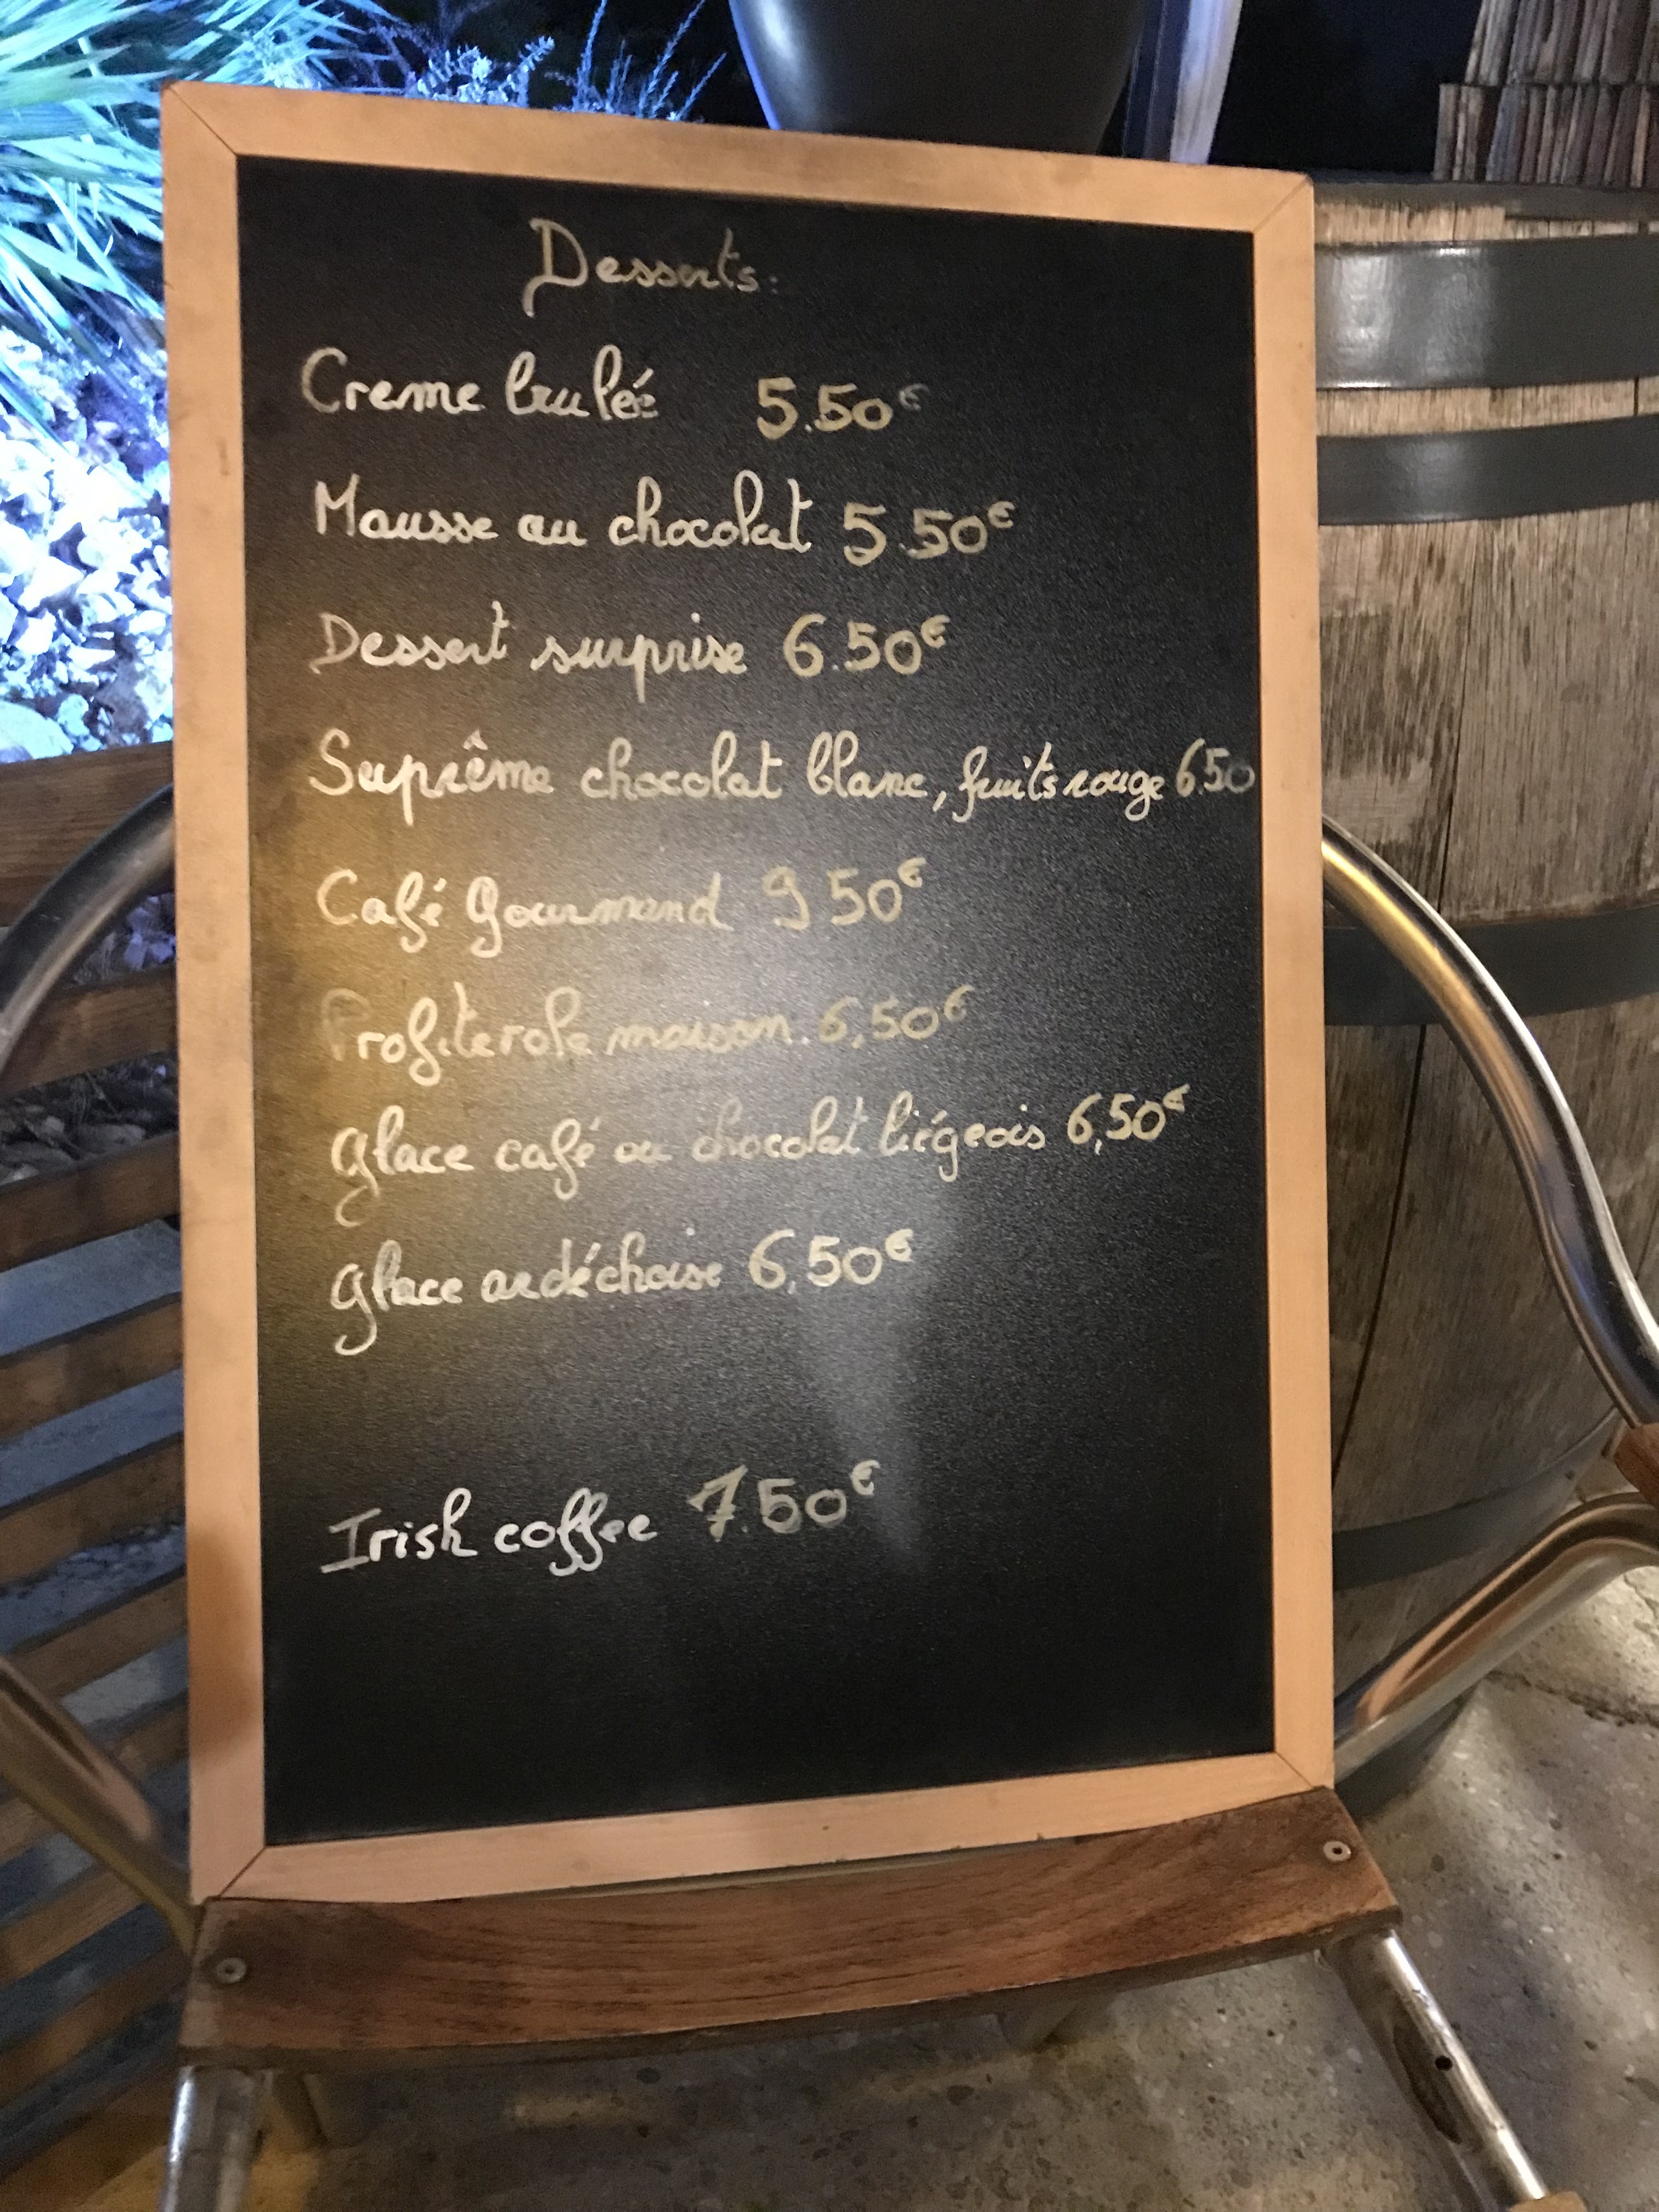 Desserts:
Creme brulée 5.50€
Mousse au chocolat 5.50€
Dessert surprise 6.50€
Suprême chocolat blanc, fruits rouge 6.50
Café Gourmand 9 50€
Profiterole maison. 6,50€
glace café ou chocolat liégeois 6,50€
glace ardéchoise 6,50€
Irish coffee 7.50€